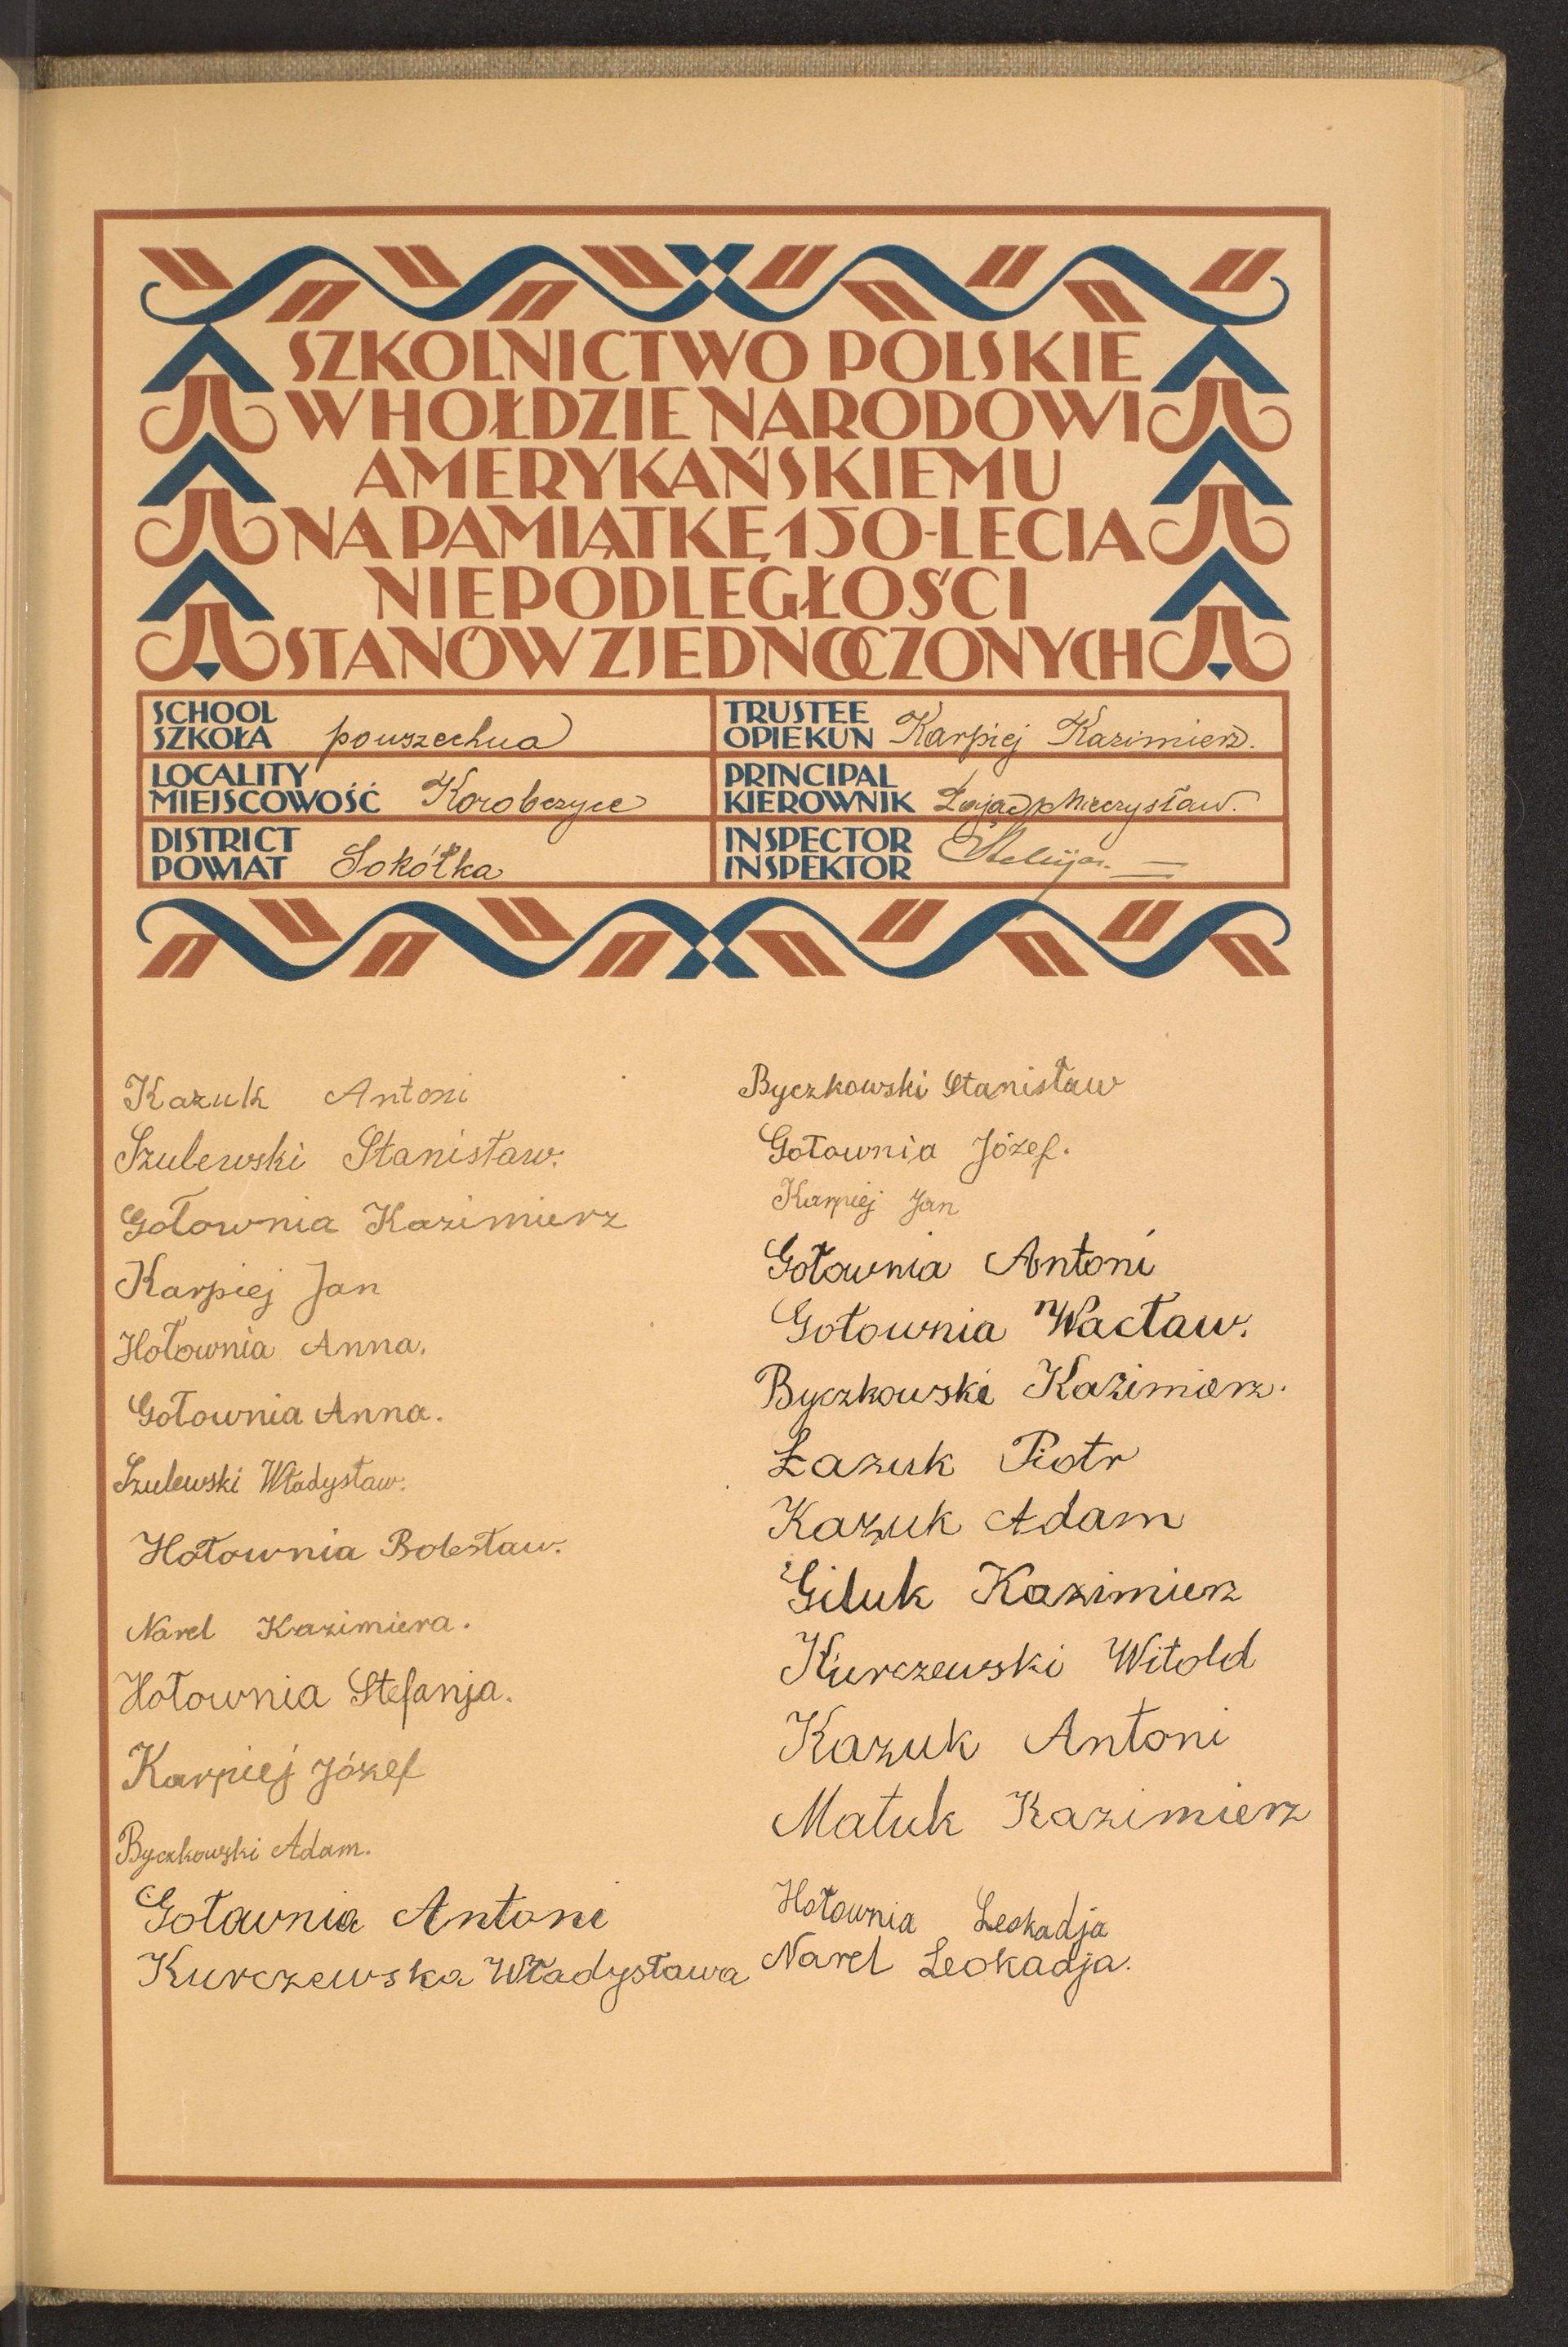 SZKOLNICTWO POLSKIE
W HOŁDZIE NARODOWI
AMERYKAŃSKIEMU
NA PAMIĄTKĘ 150-LECIA
NIEPODLEGŁOŚCI
STANÓW ZJEDNOCZONYCH
SCHOOL
SZKOŁA powszechna
TRUSTEE
OPIEKUN Karpiej Kazimierz.
LOCALITY
MIEJSCOWOŚĆ Korobczyce
PRINCIPAL
KIEROWNIK Mieczysław.
DISTRICT
POWIAT Sokółka
INSPECTOR
INSPEKTOR
Kazuk Antoni
Szulewski Stanisław.
Gołownia Kazimierz
Karpiej Jan
Hołownia Anna.
Gołownia Anna.
Szulewski Władysław.
Hołownia Bolesław.
Narel Kazimiera.
Hołownia Stefanja.
Karpiej Józef
Byczkowski Adam.
Gołownia Antoni
Kurczewska Władysława
Byczkowski Stanisław
Gołownia Józef.
Karpiej Jan
Gołownia Antoni
Gołownia Wacław.
Byczkowski Kazimierz.
Łazuk Piotr
Kazuk Adam
Giluk Kazimierz
Kurczewski Witold
Kazuk Antoni
Matuk Kazimierz
Hołownia Leokadja
Narel Leokadja.